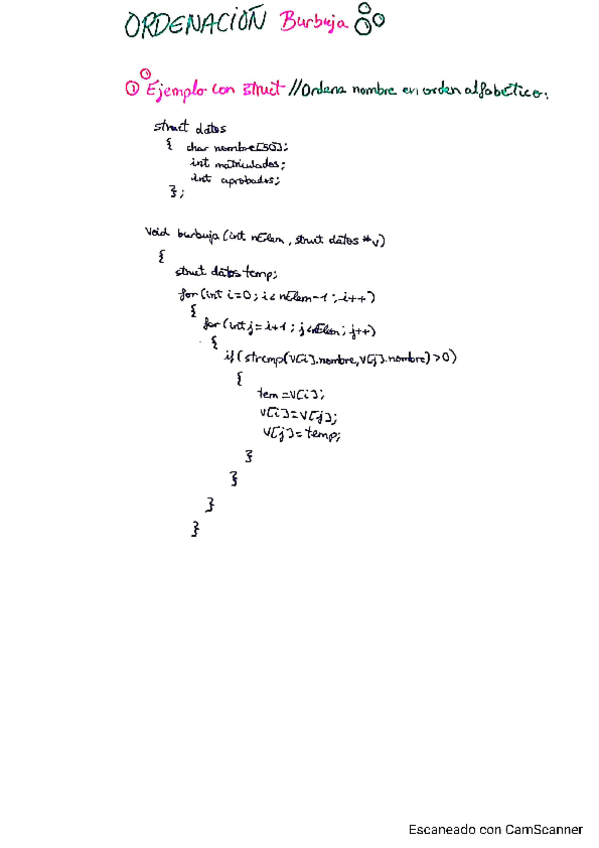 ORDENACIÓN Burbuja
① Ejemplo con struct //Ordena nombre en orden alfabético.
struct datos
{ char nombre[50];
int matriculados;
int aprobados;
};
void burbuja (int nElem, struct datos *v)
{
struct datos temp;
for(int i=0; i<nElem-1; i++)
{
for(int j=i+1; j<nElem; j++)
{
if(strcmp(v[i].nombre,v[j].nombre)>0)
{
tem =v[i];
v[i]=v[j];
v[j]=temp;
}
}
}
}
Escaneado con CamScanner